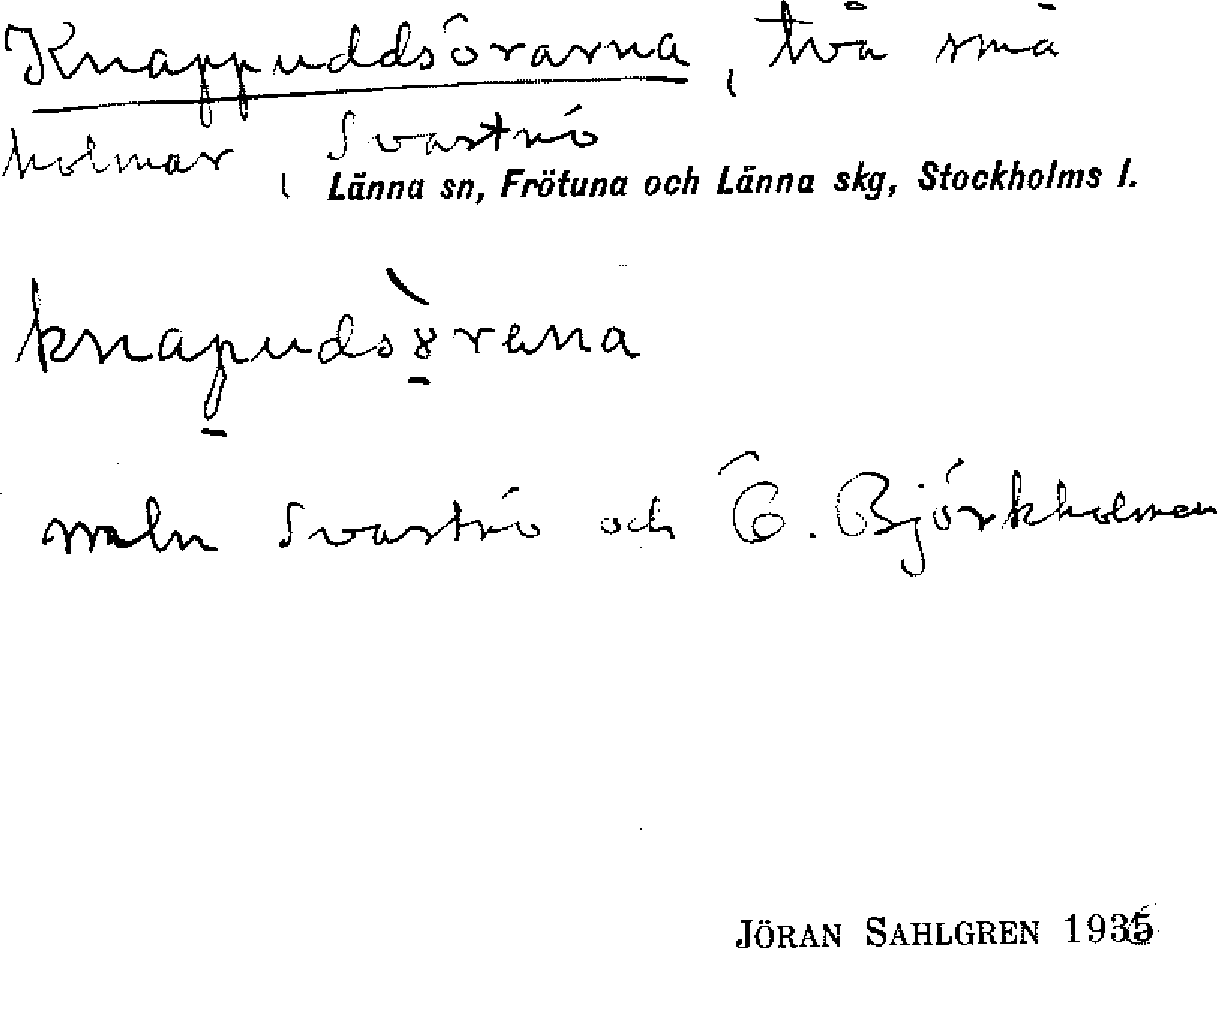 Knappuddsörarna, två små
holmar, Svartnö
Länna sn, Frötuna och Länna skg, Stockholms l.
knapudsɤ̀rena
mln Svartnö och Ö. Björkholmen
JÖRAN SAHLGREN 1936